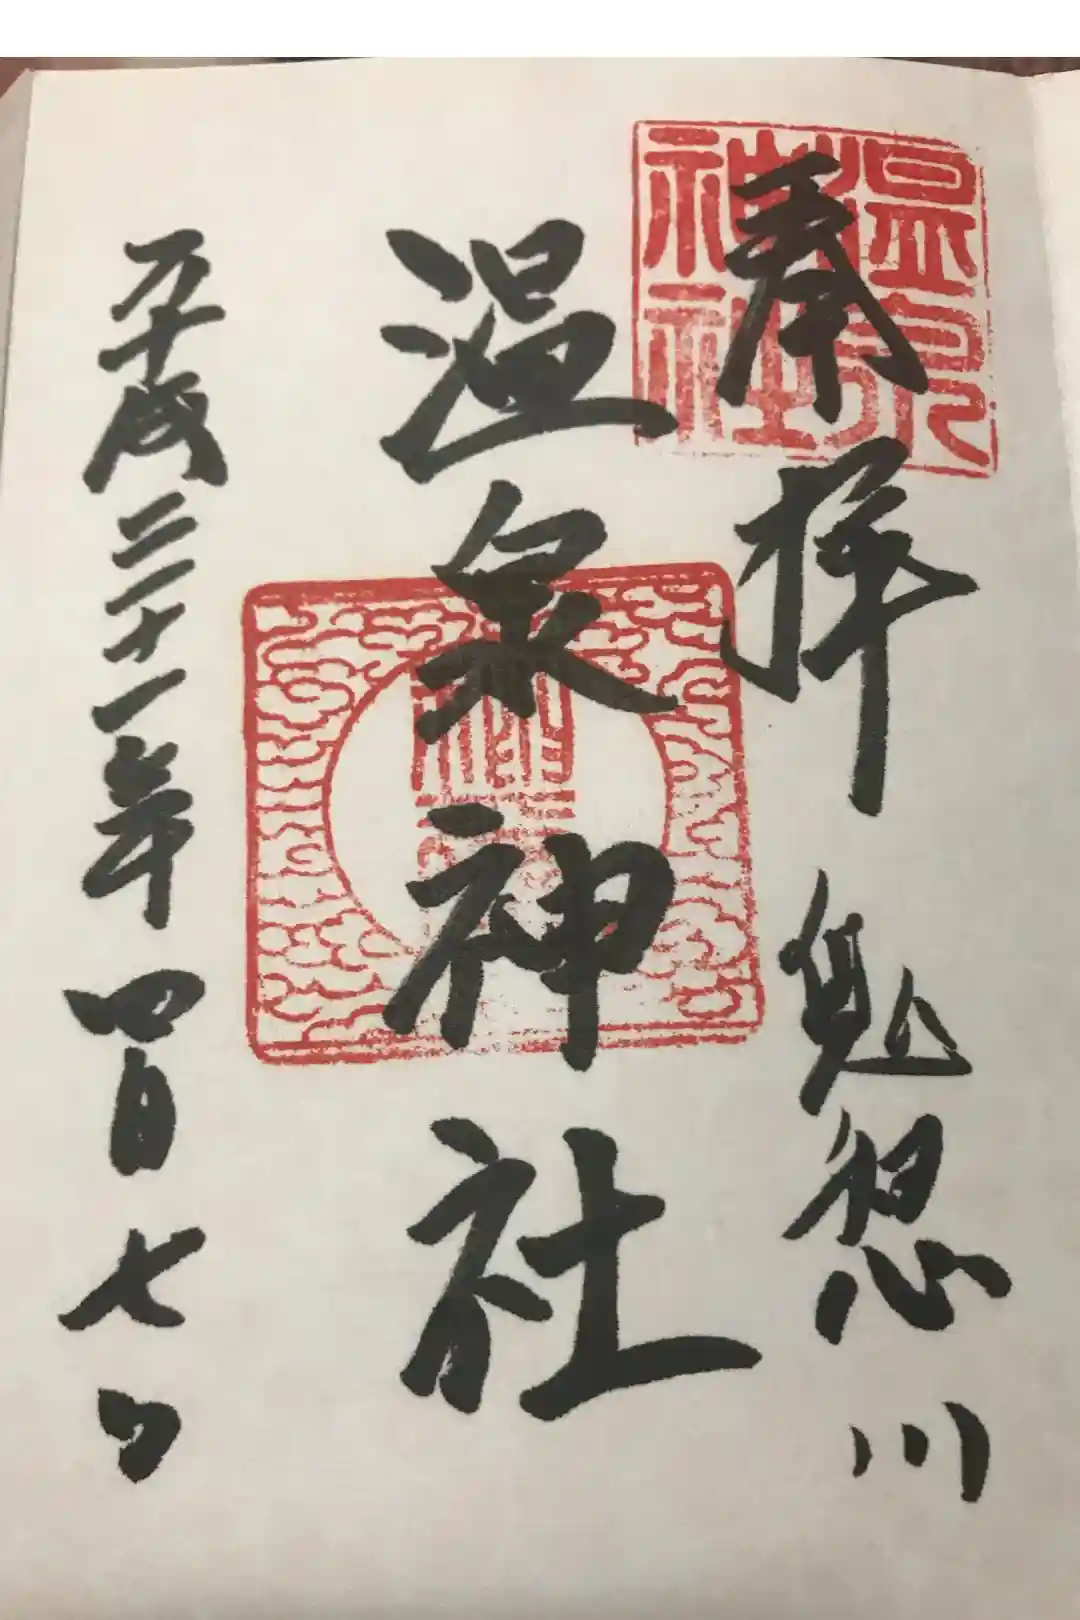 温泉
神社
奉拝 鬼怒川
温泉神社
平成三十一年四月七日